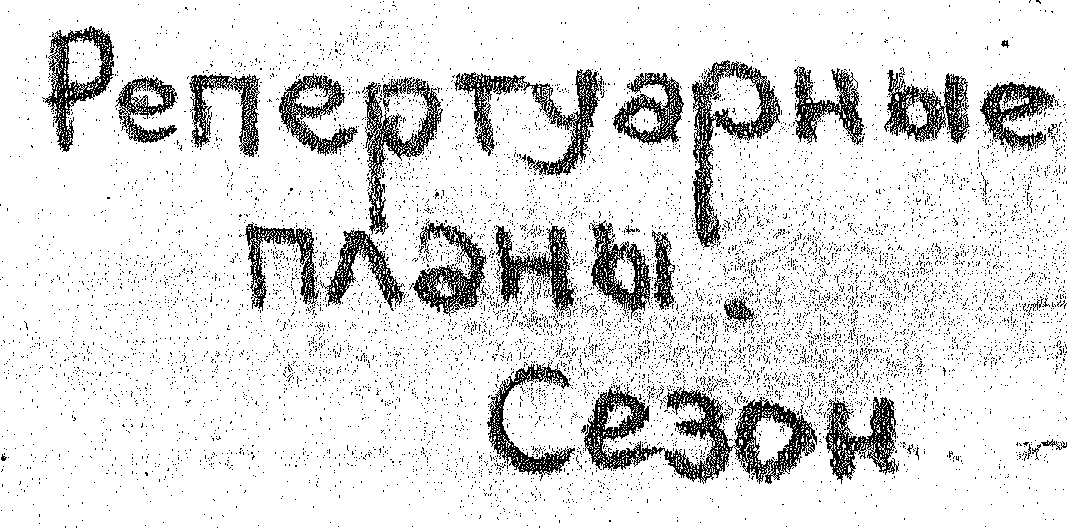 Репертуарные
планы.
Сезон